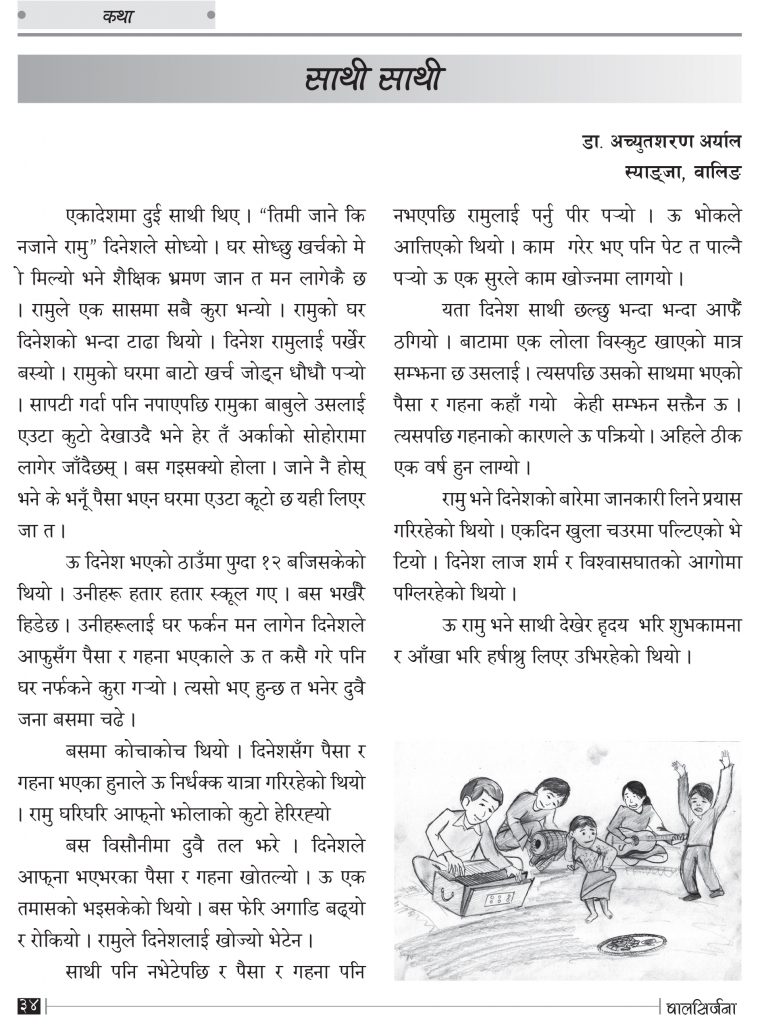 कथा
साथी साथी
डा. अच्युतशरण अर्याल
स्याङ्जा, वालिङ
एकादेशमा दुई साथी थिए । “तिमी जाने कि
नजाने रामु” दिनेशले सोध्यो । घर सोध्छु खर्चको मे
ो मिल्यो भने शैक्षिक भ्रमण जान त मन लागेकै छ
। रामुले एक सासमा सबै कुरा भन्यो । रामुको घर
दिनेशको भन्दा टाढा थियो । दिनेश रामुलाई पर्खेर
बस्यो । रामुको घरमा बाटो खर्च जोड्न धौधौ पऱ्यो
। सापटी गर्दा पनि नपाएपछि रामुका बाबुले उसलाई
एउटा कुटो देखाउदै भने हेर तँ अर्काको सोहोरामा
लागेर जाँदैछस् । बस गइसक्यो होला । जाने नै होस्
भने के भनूँ पैसा भएन घरमा एउटा कूटो छ यही लिएर
जा त ।
ऊ दिनेश भएको ठाउँमा पुग्दा १२ बजिसकेको
थियो । उनीहरू हतार हतार स्कूल गए । बस भर्खरै
हिडेछ । उनीहरूलाई घर फर्कन मन लागेन दिनेशले
आफुसँग पैसा र गहना भएकाले ऊ त कसै गरे पनि
घर नर्फकने कुरा गऱ्यो । त्यसो भए हुन्छ त भनेर दुवै
जना बसमा चढे ।
बसमा कोचाकोच थियो । दिनेशसँग पैसा र
गहना भएका हुनाले ऊ निर्धक्क यात्रा गरिरहेको थियो
। रामु घरिघरि आफ्नो झोलाको कुटो हेरिरह्यो
बस विसौनीमा दुवै तल झरे । दिनेशले
आफ्ना भएभरका पैसा र गहना खोतल्यो । ऊ एक
तमासको भइसकेको थियो । बस फेरि अगाडि बढ्यो
र रोकियो । रामुले दिनेशलाई खोज्यो भेटेन ।
साथी पनि नभेटेपछि र पैसा र गहना पनि
नभएपछि रामुलाई पर्नु पीर पऱ्यो । ऊ भोकले
आत्तिएको थियो । काम गरेर भए पनि पेट त पाल्नै
पऱ्यो ऊ एक सुरले काम खोज्नमा लागयो ।
यता दिनेश साथी छल्छु भन्दा भन्दा आफैँ
ठगियो । बाटामा एक लोला विस्कुट खाएको मात्र
सम्झना छ उसलाई । त्यसपछि उसको साथमा भएको
पैसा र गहना कहाँ गयो केही सम्झन सक्तैन ऊ ।
त्यसपछि गहनाको कारणले ऊ पक्रियो । अहिले ठीक
एक वर्ष हुन लाग्यो ।
रामु भने दिनेशको बारेमा जानकारी लिने प्रयास
गरिरहेको थियो । एकदिन खुला चउरमा पल्टिएको भे
टियो । दिनेश लाज शर्म र विश्वासघातको आगोमा
पग्लिरहेको थियो ।
ऊ रामु भने साथी देखेर हृदय भरि शुभकामना
र आँखा भरि हर्षाश्रु लिएर उभिरहेको थियो ।
३४
बालसिर्जना